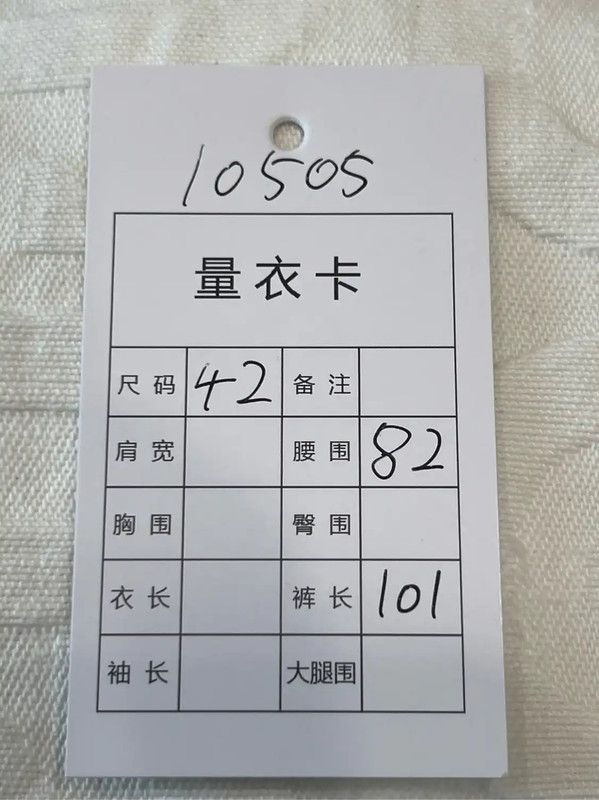 10505
量衣卡
尺码 42 备注
肩宽 腰围 82
胸围 臀围
衣长 裤长 101
袖长 大腿围